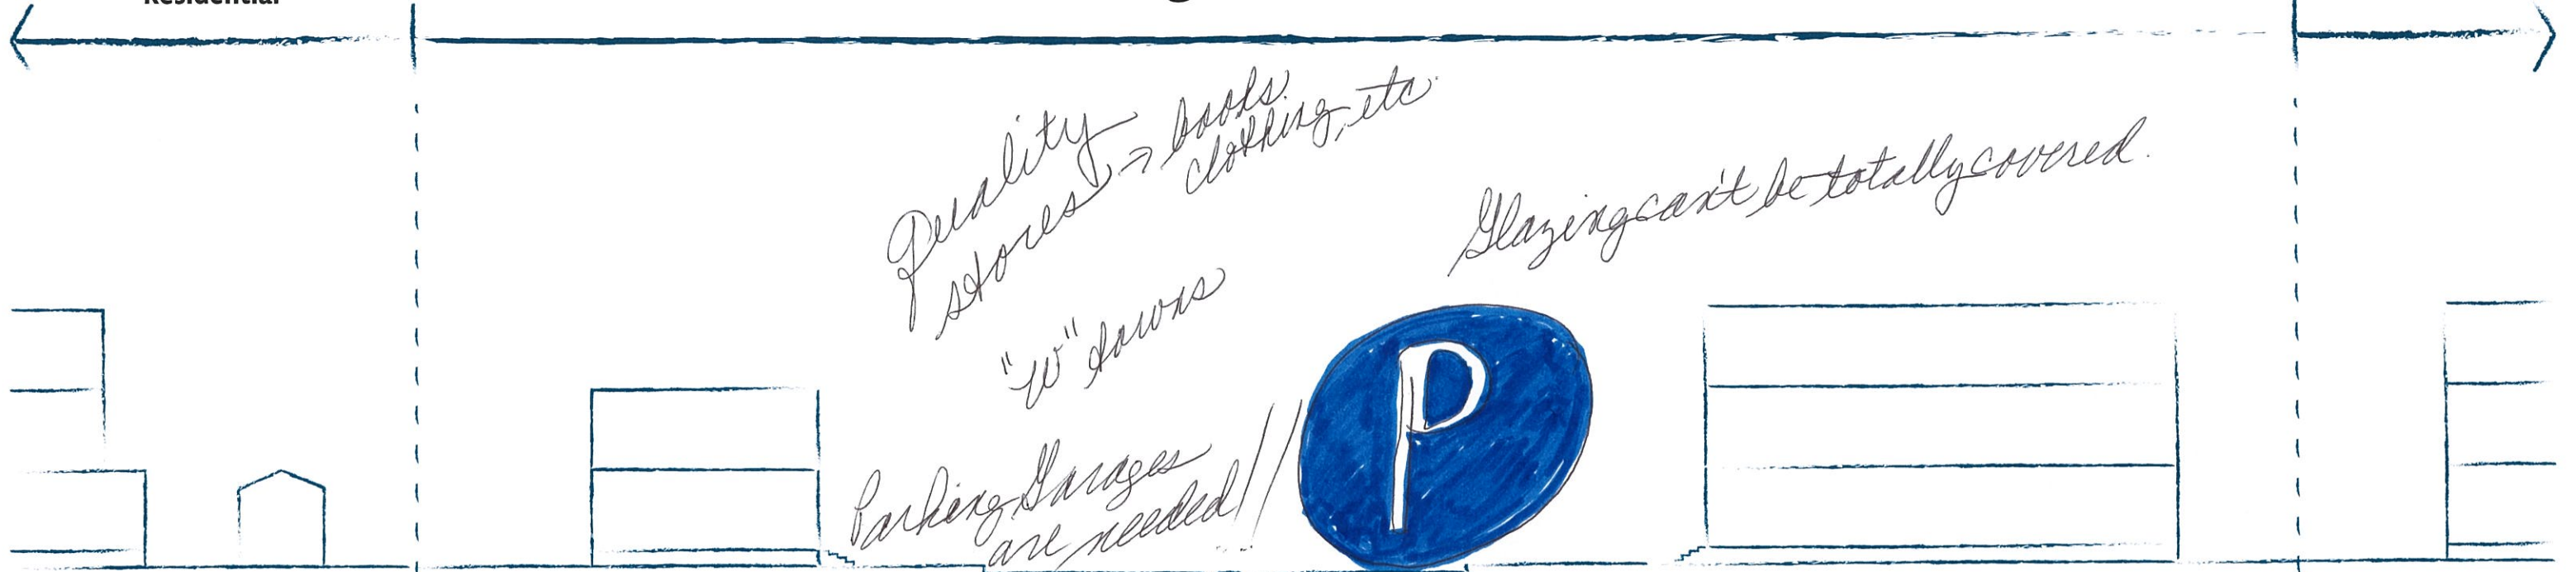 Residential
Quality
stores → books
clothing, etc
Glazing can't be totally covered.
"W"
Parking Garages
are needed!!
P